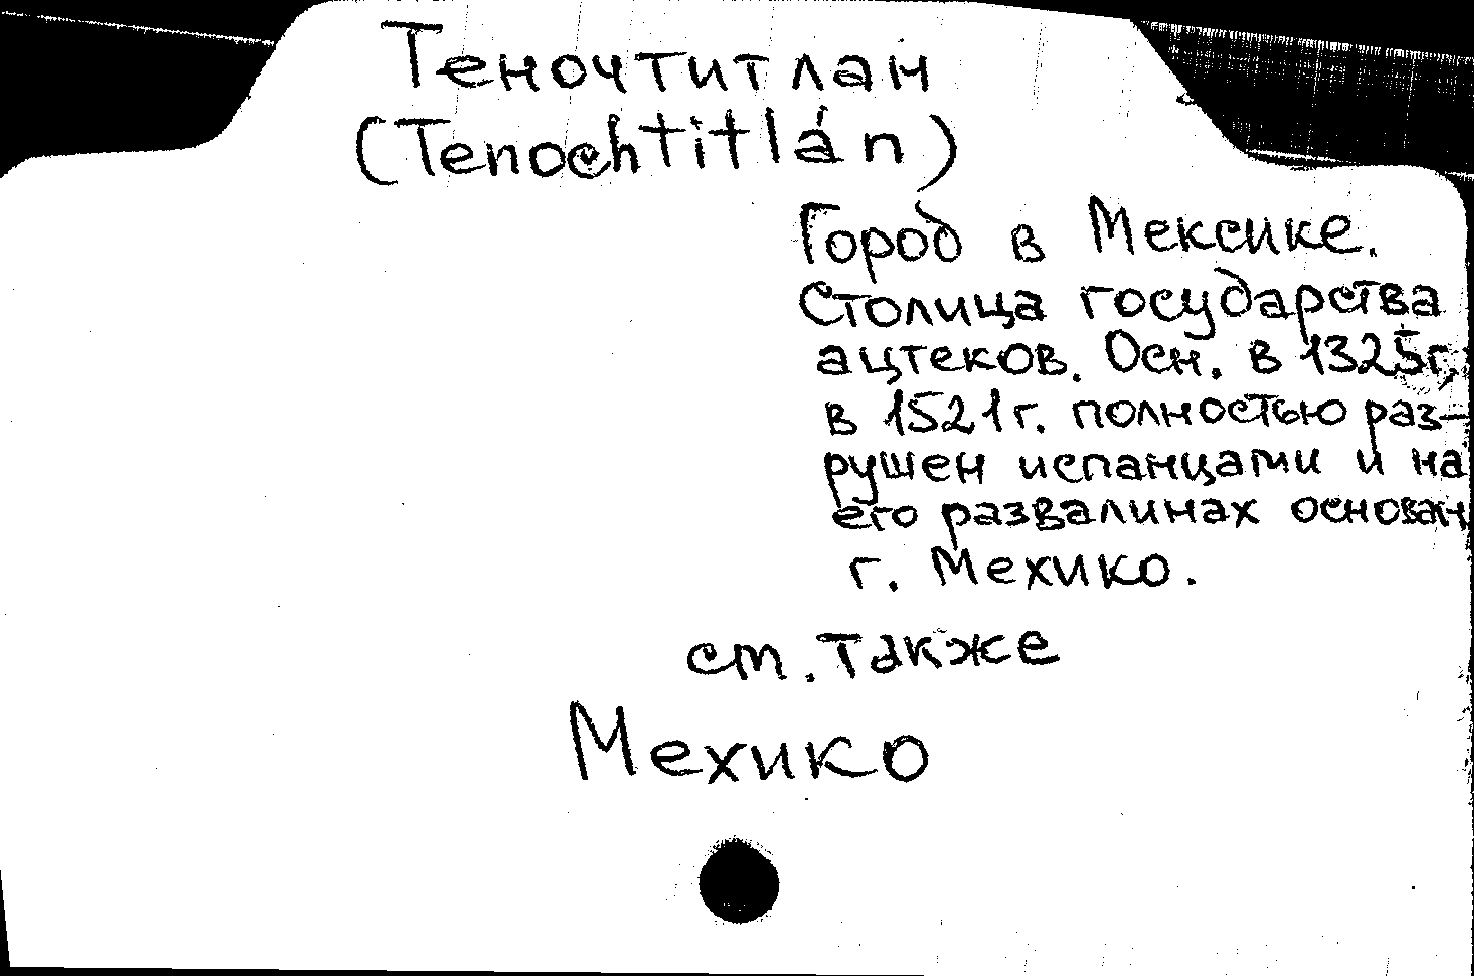 Теночтитлан
(Tenochtitlán)
Город в Мексике.
Столица государства
ацтеков. Осн. в 1325г,
в 1521г. полностью раз-
рушен испанцами и на
его развалинах основан
г. Мехико.
см. также
Мехико